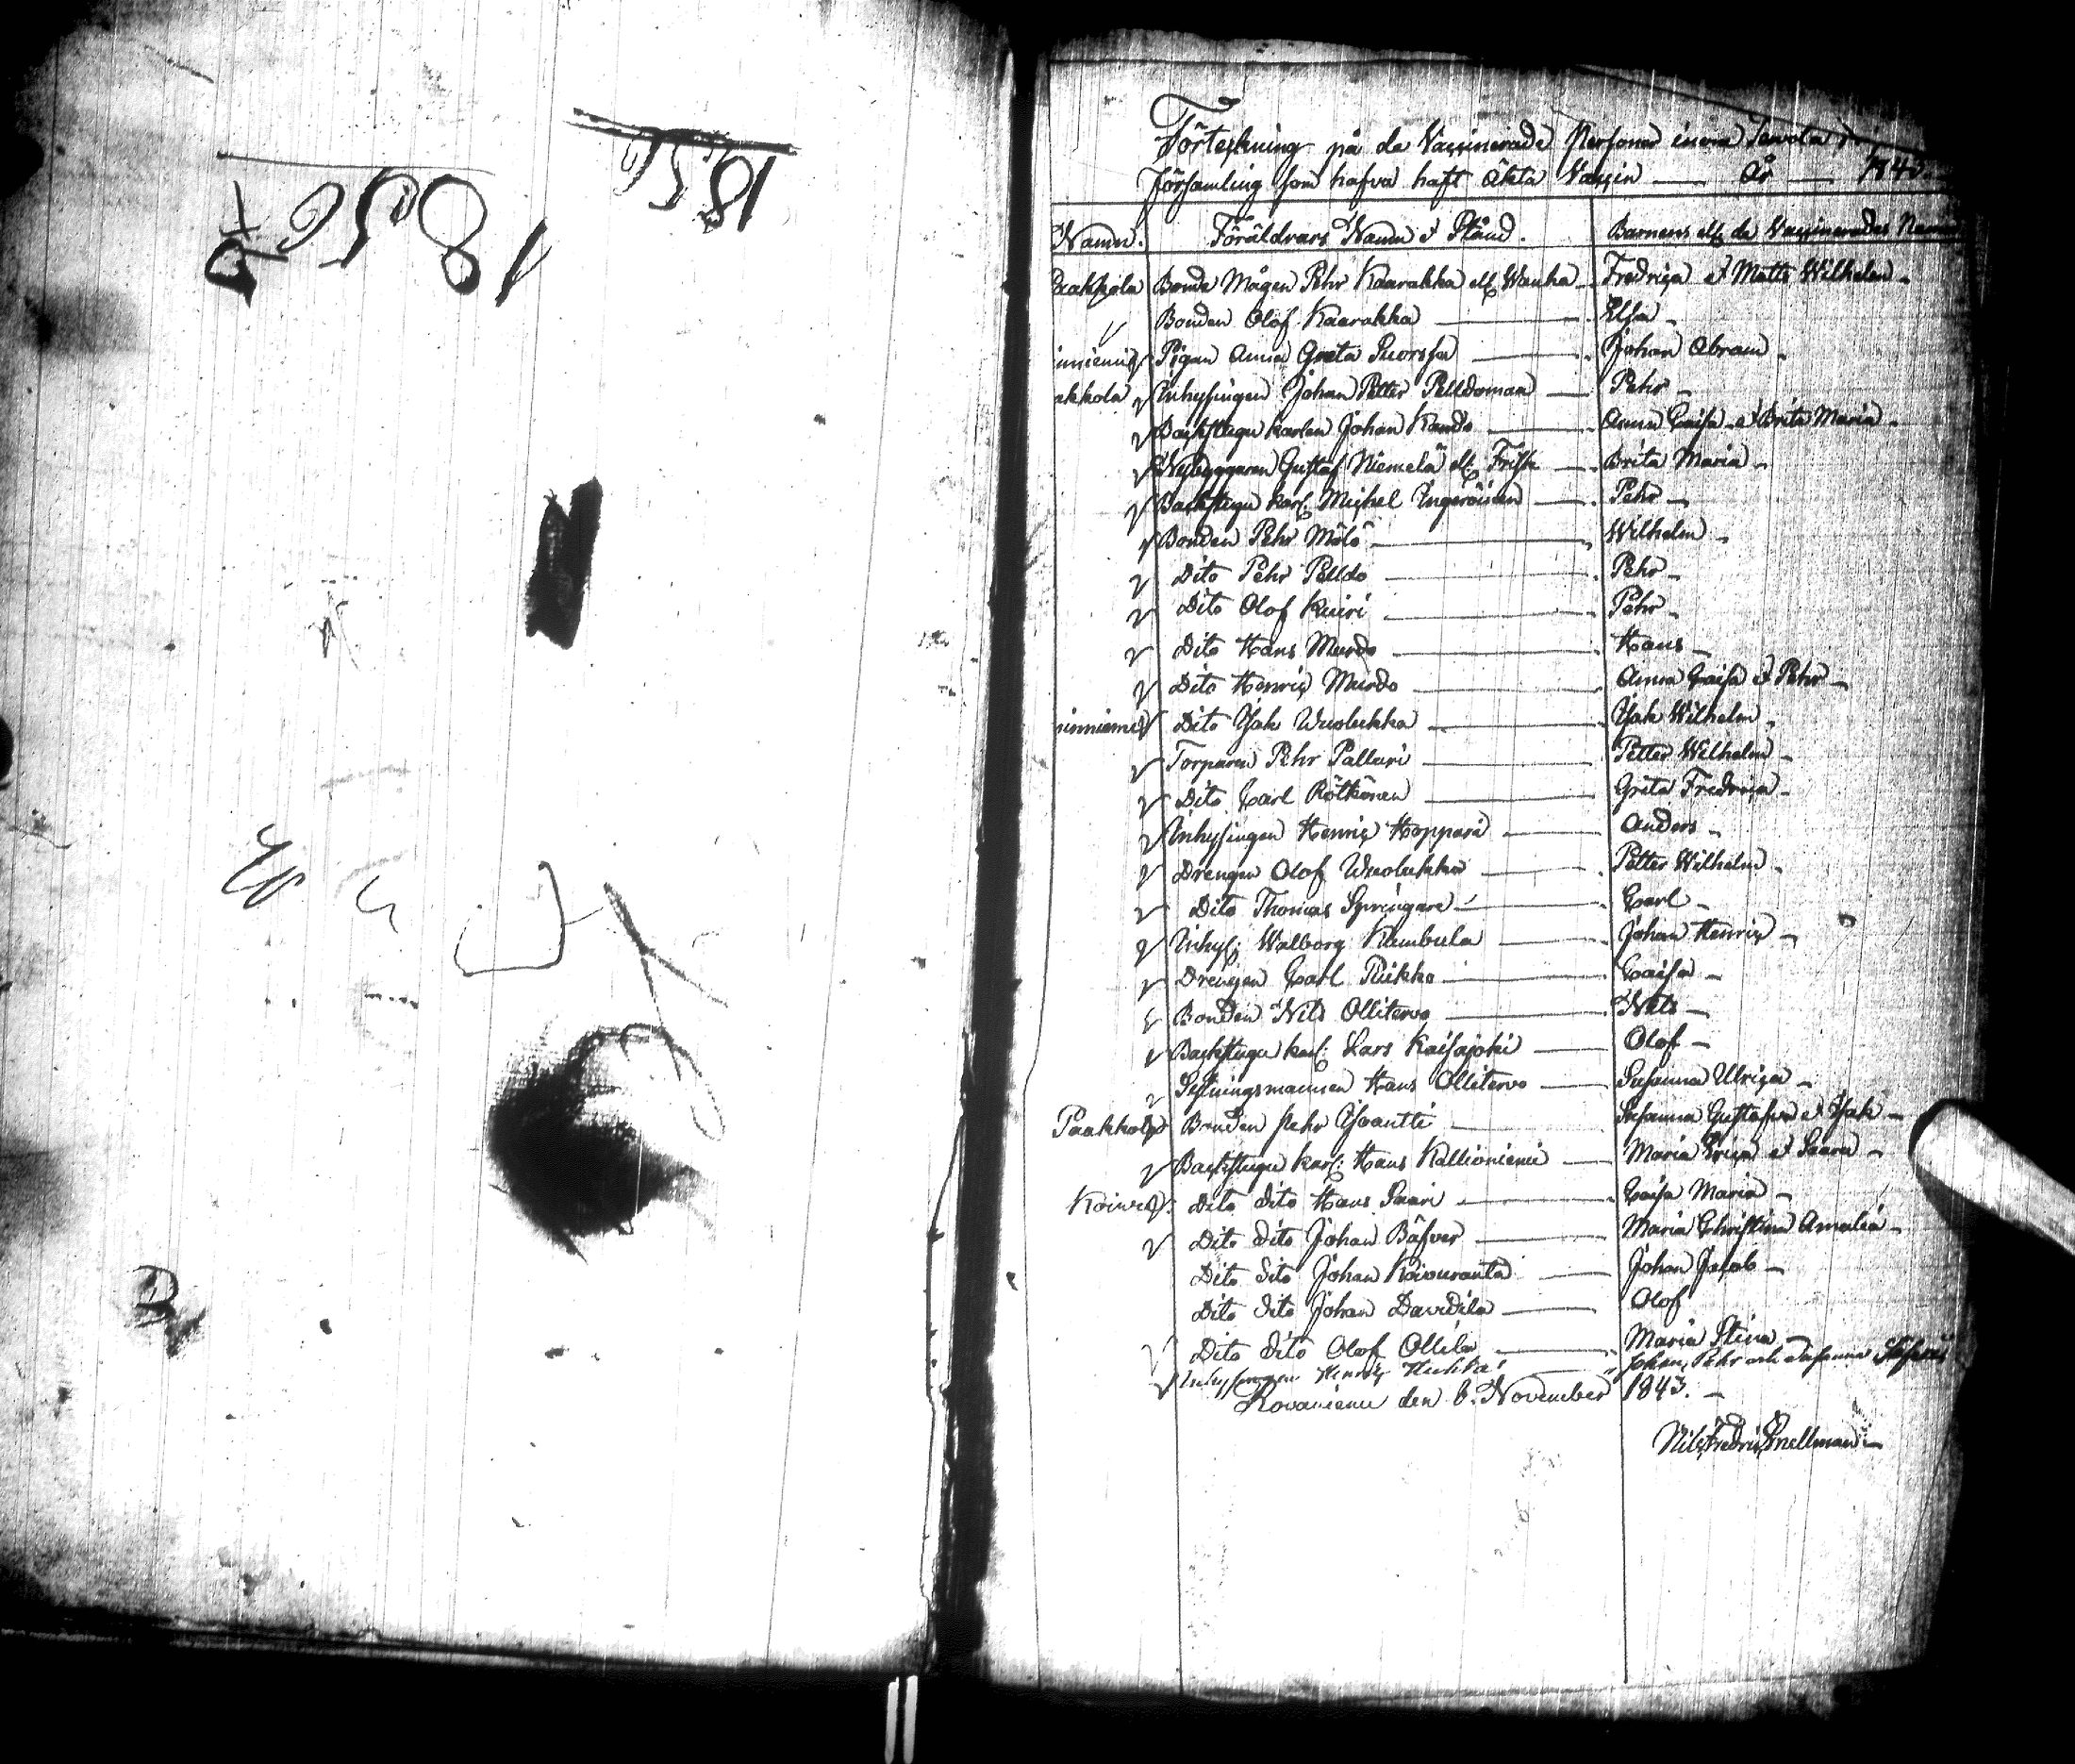 1856
1856
Förteckning på de Vaccinerade Personer inom Tervola
församling som hafva haft äkta Vaccin — År — 1843
Namn. Föräldrars Namn et Stånd. Barnens ell. de Vaccinerades Namn
Paakkola Bonde Mågen Pehr Kaarakka ell. Wanha — Fredrica et Matts Wilhelm —
Bonden Olof Kaarakka — Elsa —
Pigan Anna Greta Suorsa — Johan Abram —
akkola Inhysingen Johan Petter Pelldoman — Pehr —
Backstugu karlen Johan — Anna Caisa et Brita Maria —
Nybyggaren Gustaf Niemelä ell. Frisk — Brita Maria —
Backstugu karl. Michel Ingeröinen — Pehr —
Bonden Pehr Mölö — Wilhelm —
Dito Pehr Pelldo — Pehr —
Dito Olof Kuiri — Pehr —
Dito Hans Murdo — Hans —
Dito Henric Murdo — Anna Caisa et Pehr —
inniemi Dito Isak Wuolukka — Isak Wilhelm —
Torparen Pehr Palluri — Petter Wilhelm —
Dito Carl Rötkönen — Greta Fredrica —
Inhysingen Henric Hoppari — Anders —
Drengen Olof Wuolukka — Petter Wilhelm —
Dito Thomas Springare — Carl —
Inhys. Walborg Kumbula — Johan Henric —
Drengen Carl Pukko — Caisa —
Bonden Nils Ollitervo — Nils —
Backstugu karl. Lars Kaisajoki — Olof —
Hans Ollitervo — Susanna Ulrica —
Paakkola Bonden Pehr — Susanna Gustafva et Isak —
Backstugu karl. Hans Kallioniemi — Maria Erica et Saara —
Koivu Dito dito Hans Saari — Caisa Maria —
Dito dito Johan Bäfver — Maria Christina Amalia —
Dito dito Johan Koivuranta — Johan Jacob —
Dito dito Johan Davidila — Olof
Dito dito Olof Ollila — Maria Stina —
Inhysingen Henric — Johan, Pehr och Susanna
Rovaniemi den 8. November 1843. —
Nils Fredric Snellman —